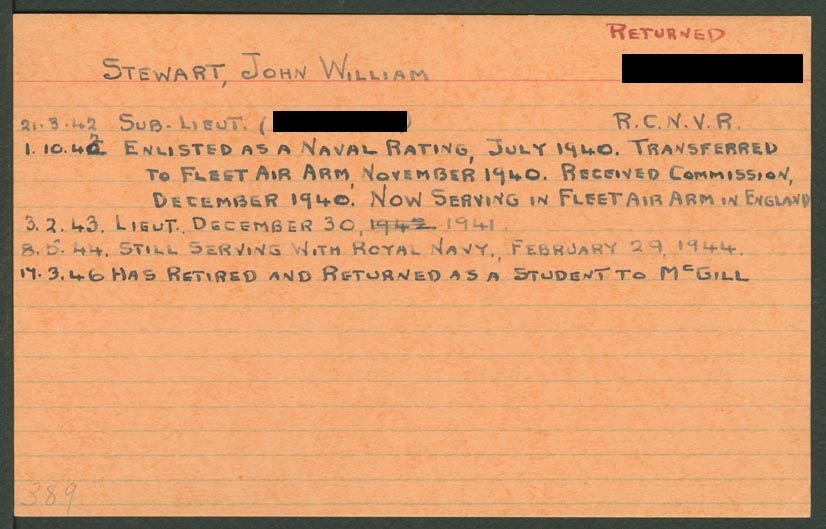 RETURNED
STEWART, JOHN WILLIAM
21.3.42 SUB-LIEUT. ( ) R.C.N.V.R.
1.10.42 ENLISTED AS A NAVAL RATING, JULY 1940. TRANSFERRED
TO FLEET AIR ARM, NOVEMBER 1940. RECEIVED COMMISSION,
DECEMBER 1940. NOW SERVING IN FLEET AIR ARM IN ENGLAND
3.2.43. LIEUT. DECEMBER 30, 1942 1941.
8.5.44. STILL SERVING WITH ROYAL NAVY., FEBRUARY 29, 1944.
17.3.46 HAS RETIRED AND RETURNED AS A STUDENT TO MCGILL
389